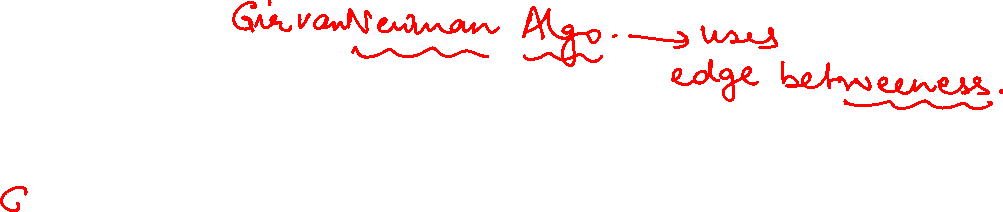 GirvanNewman Algo. → uses
edge betweeness.
G